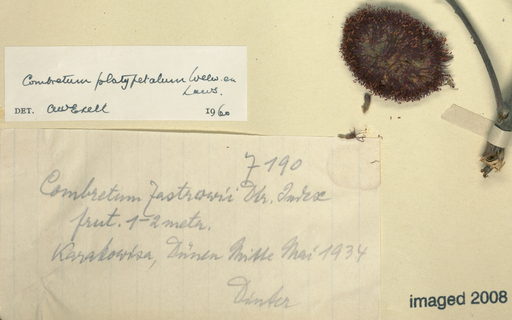 Combretum platypetalum Welw. ex
Laws.
DET. A W Exell 1960
7190
Combretum Zastrowii Dtr. Index
frut. 1-2 metr.
Karakowisa, Dünen Mitte Mai 1934
Dinter
imaged 2008